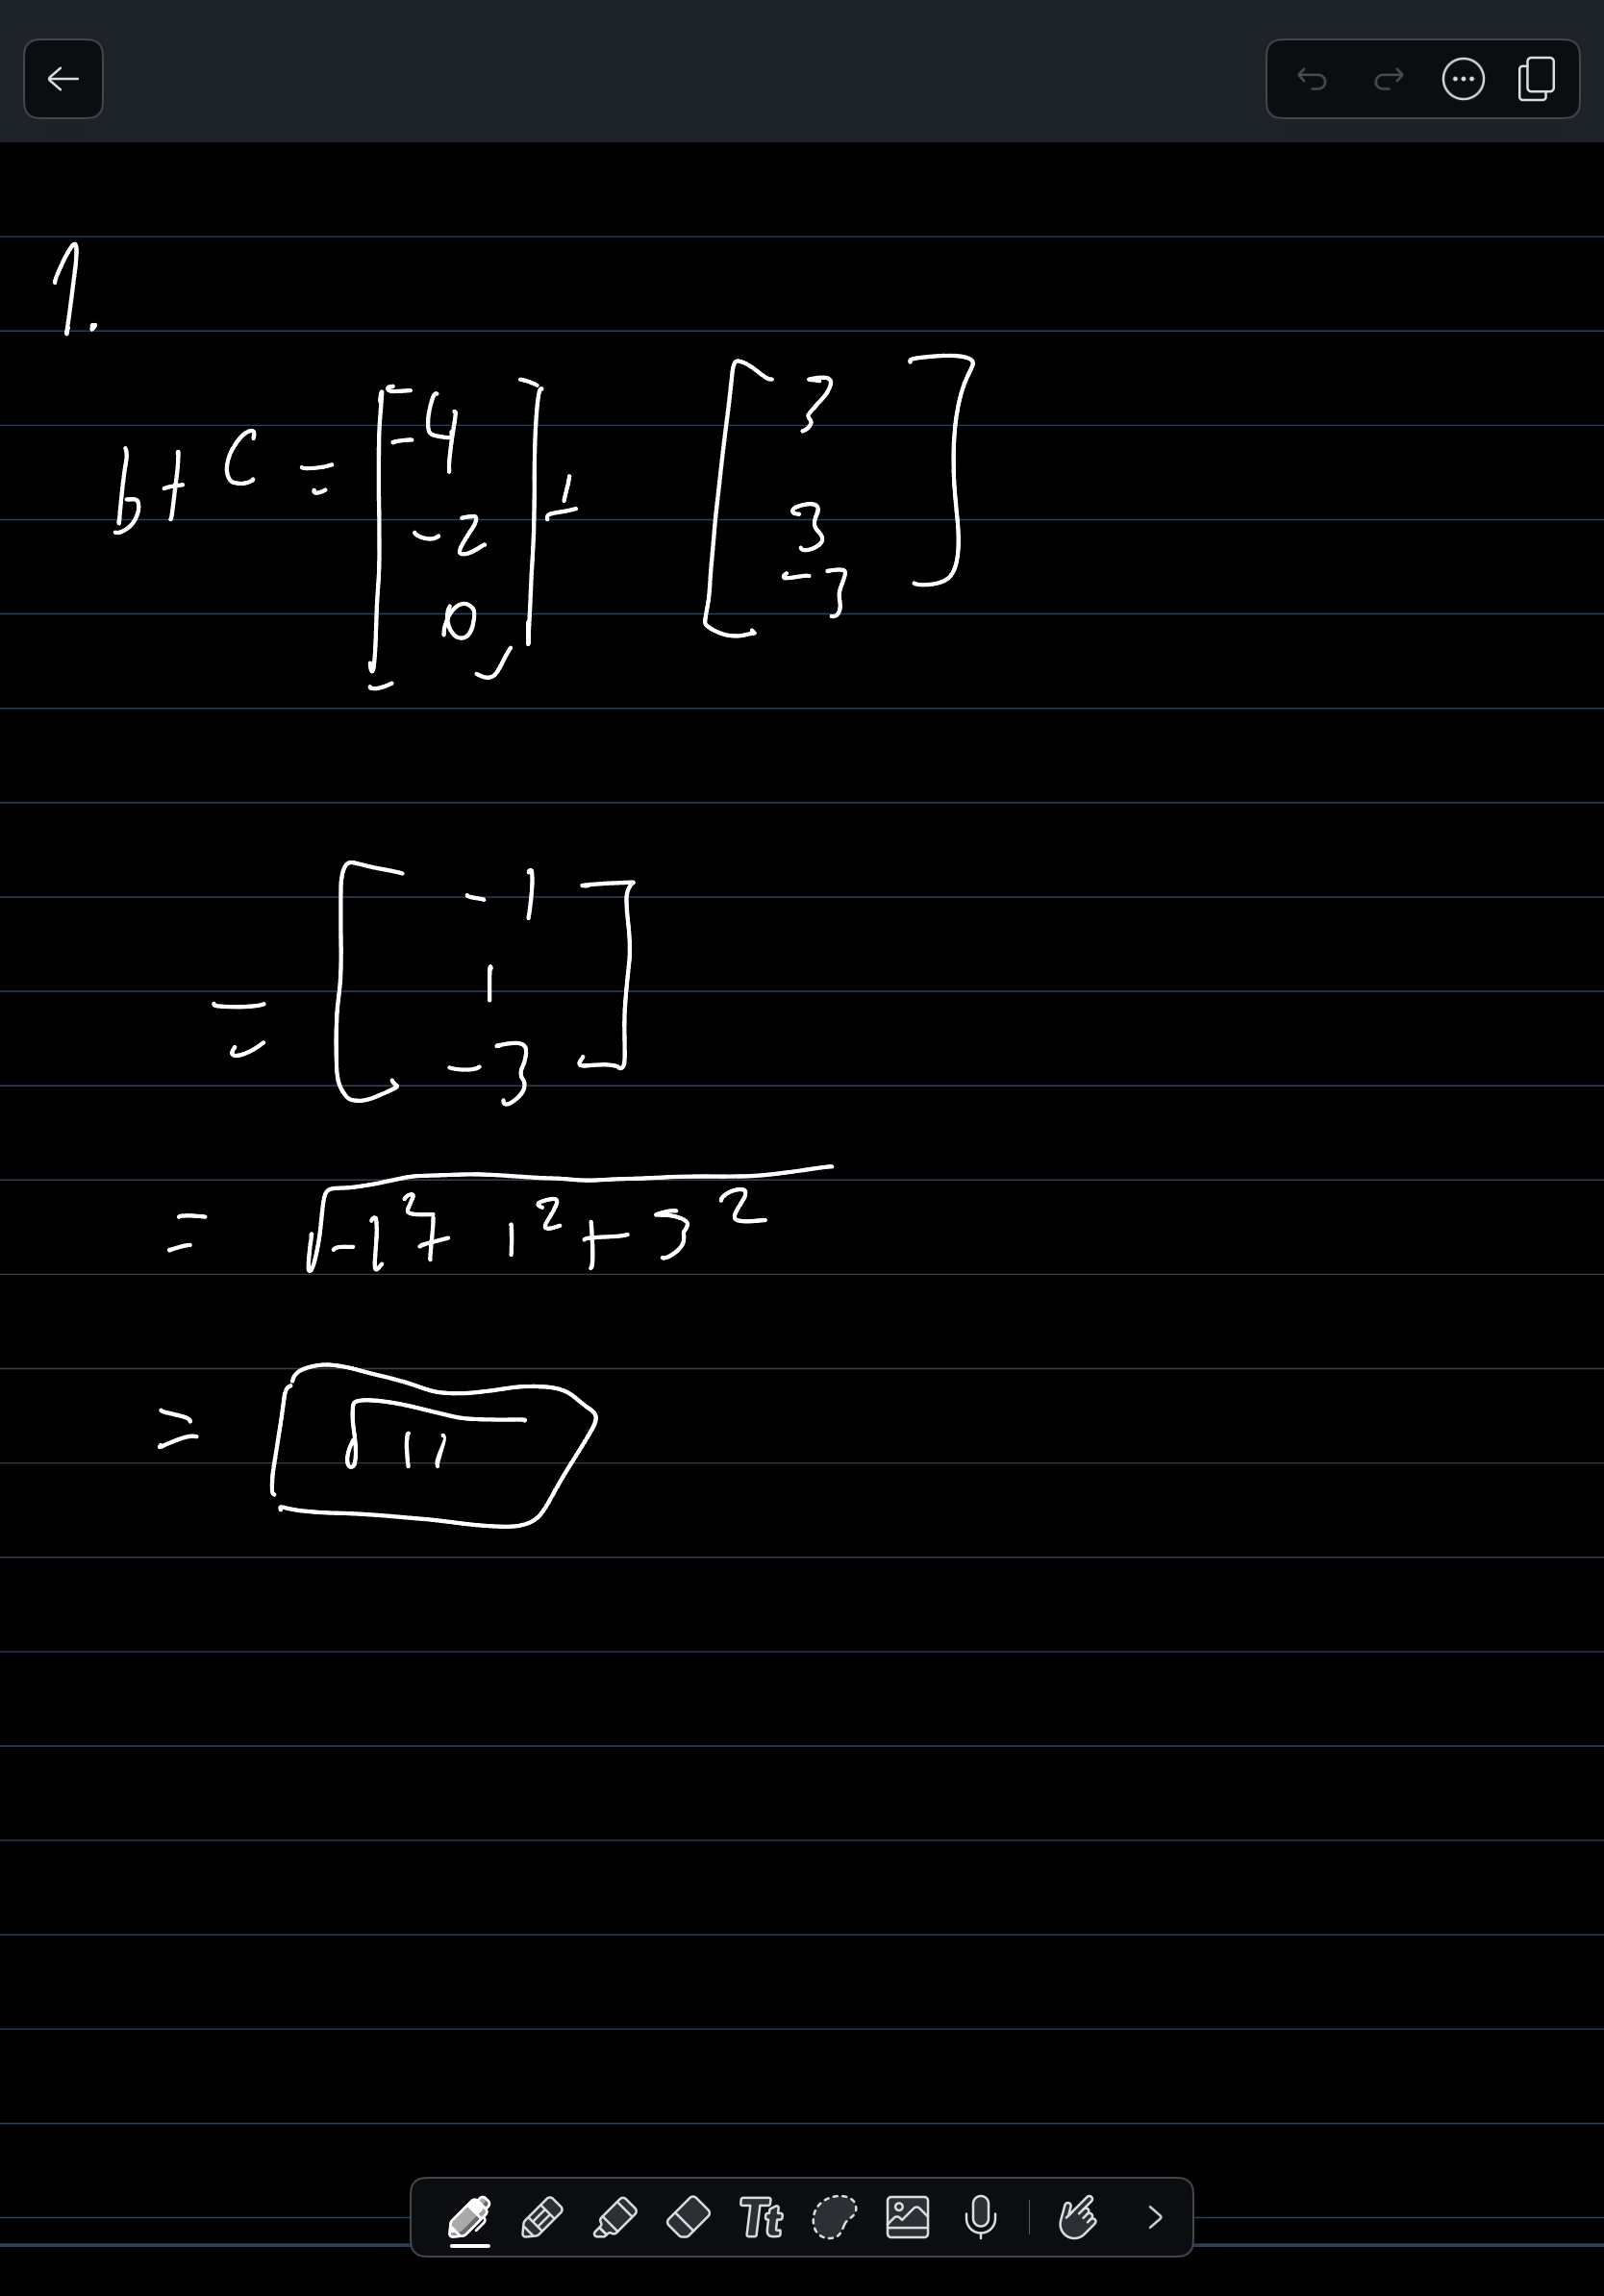 1.
b + c = [ -4 ] + [ 3 ]
[ -2 ] [ 3 ]
[ 0 ] [ -3 ]
= [ -1 ]
[ 1 ]
[ -3 ]
= √-1² + 1² + 3²
= √11
Tt